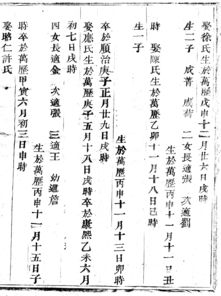 娶徐氏生於萬歷戊申十二月廿六日戌時
生二子 成 成 二女長適張 次適劉
生於萬歷丙申十一月十一日丑
時 娶陳氏生於萬歷乙卯十一月十八日己時
生一子
生於萬歷丙申十一月十三日卯時
卒於順治庚子正月廿九日戌時
娶應氏生於萬歷庚子五月十八日戌時卒於康熙乙未六月
初七日戌時
四女長適金 次適張 三適王 幼適詹
生於萬歷丙申十二月十五日子
時卒於萬歷甲寅六月初三日申時
娶聰仁許氏